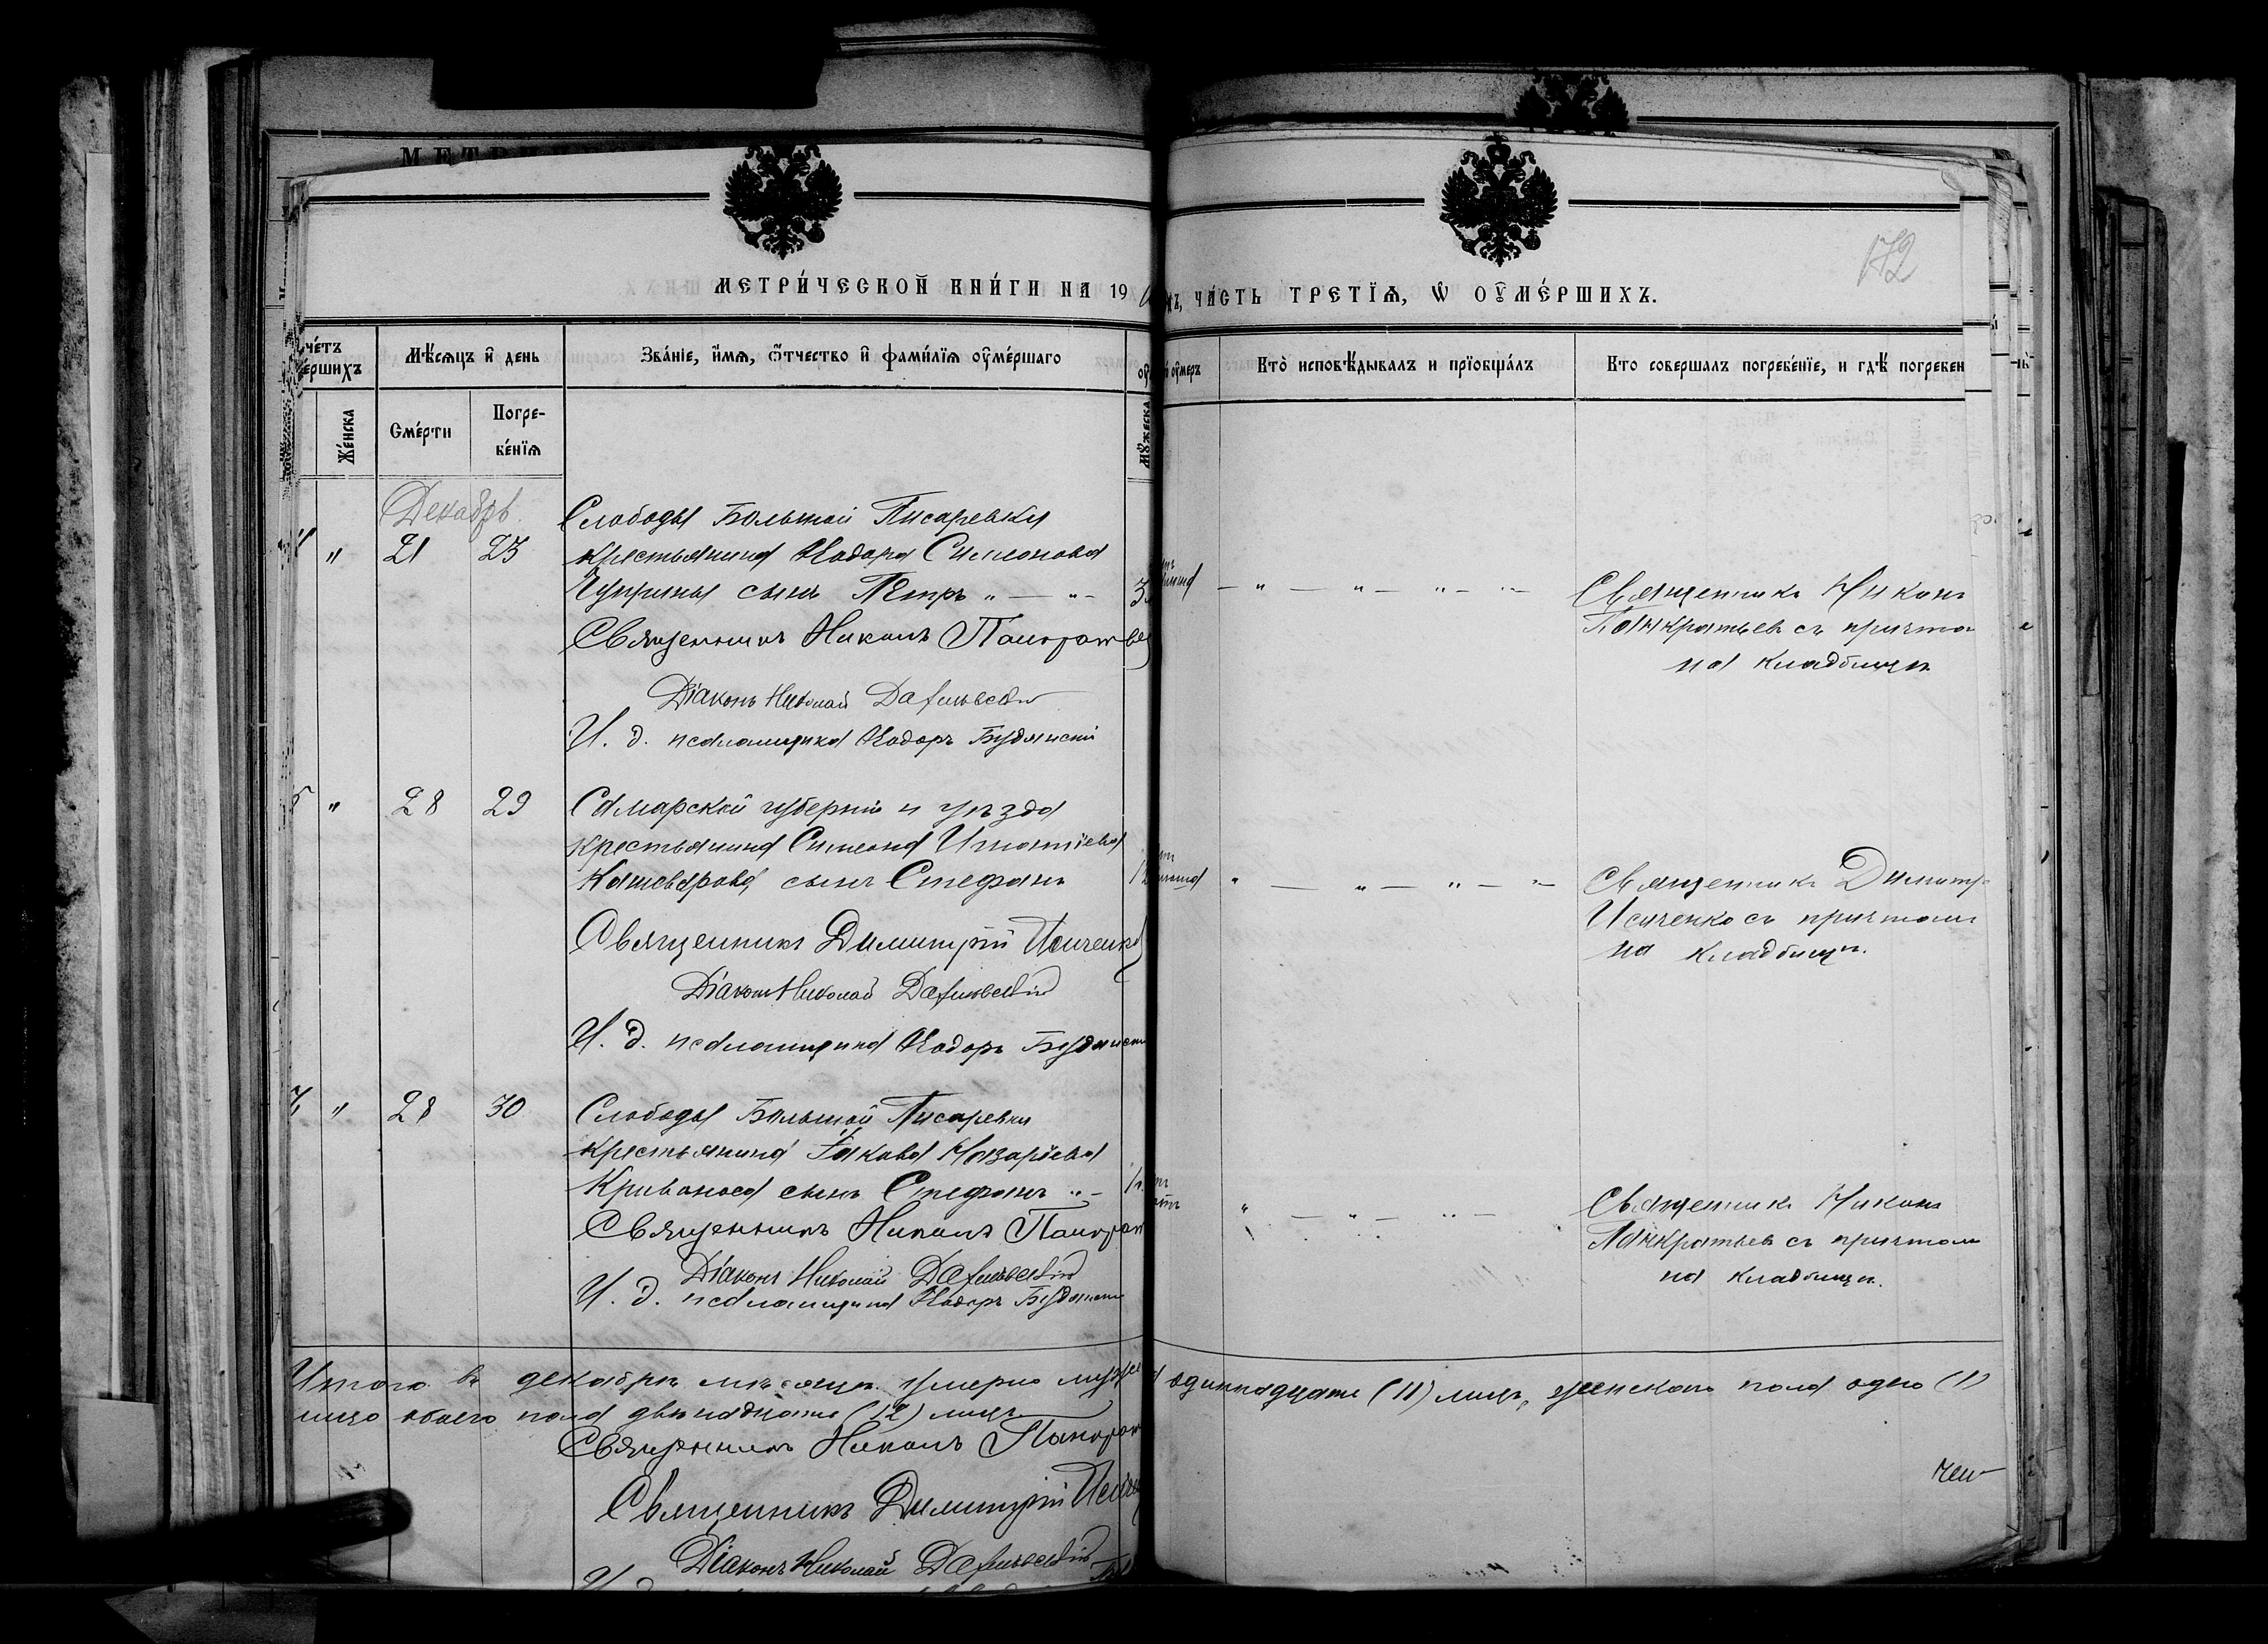 МЕТРИ́ЧЕСКОЙ КНИ́ГИ НА 19
ЧА́СТЬ ТРЕТЇѦ, Ѡ ОУ҆МЕ́РШИХЪ.
172
Мѣ́сяцъ и҆ день
Зва́нїе, и҆́мя, ѻ҆́тчество и҆ фами́лїя оу҆ме́ршаго
Кто̀ исповѣ́дывалъ и прїобща́лъ
Кто совершалъ погребе́нїе, и гдѣ̀ погребен
Же́нска
Сме́рти
Погре-
бе́нїя
Мꙋ́жеска
Декабрь
Слободы Большой Писаревки
" 21 23 крестьянина Ѳедора Симеонова
Чуприны сынъ Петръ " — " —
Священникъ Никонъ Панкратьев
Діаконъ Николай
И. д. псаломщика Ѳедоръ Будянскій
Священникъ Никонъ
Панкратьевъ съ причто
на кладбищѣ
" 28 29 Самарской губерніи и уѣзда
крестьянина Симеона Игнатіева
Кашеварова сынъ Стефанъ
Священникъ Димитрій Исиченко
Діаконъ Николай
И. д. псаломщика Ѳедоръ Будянскій
Священникъ Димитр
Исиченко съ причтомъ
на кладбищѣ.
" 28 30 Слободы Большой Писаревки
крестьянина Іакова Назаріева
Кривоноса сынъ Стефанъ " —
Священникъ Никонъ Панкрат
Діаконъ Николай
И. д. псаломщика Ѳедоръ Будянскій
Священникъ Никонъ
Панкратьевъ съ причтомъ
на кладбищѣ.
Итого въ декабрѣ мѣсяцѣ умерло мужеск одиннадцать (11) лицъ, женскаго пола одно (1)
лицо обоего пола двѣнадцать (12) лицъ
Священникъ Никонъ Панкрат
Священникъ Димитрій Исичен
Діаконъ Николай